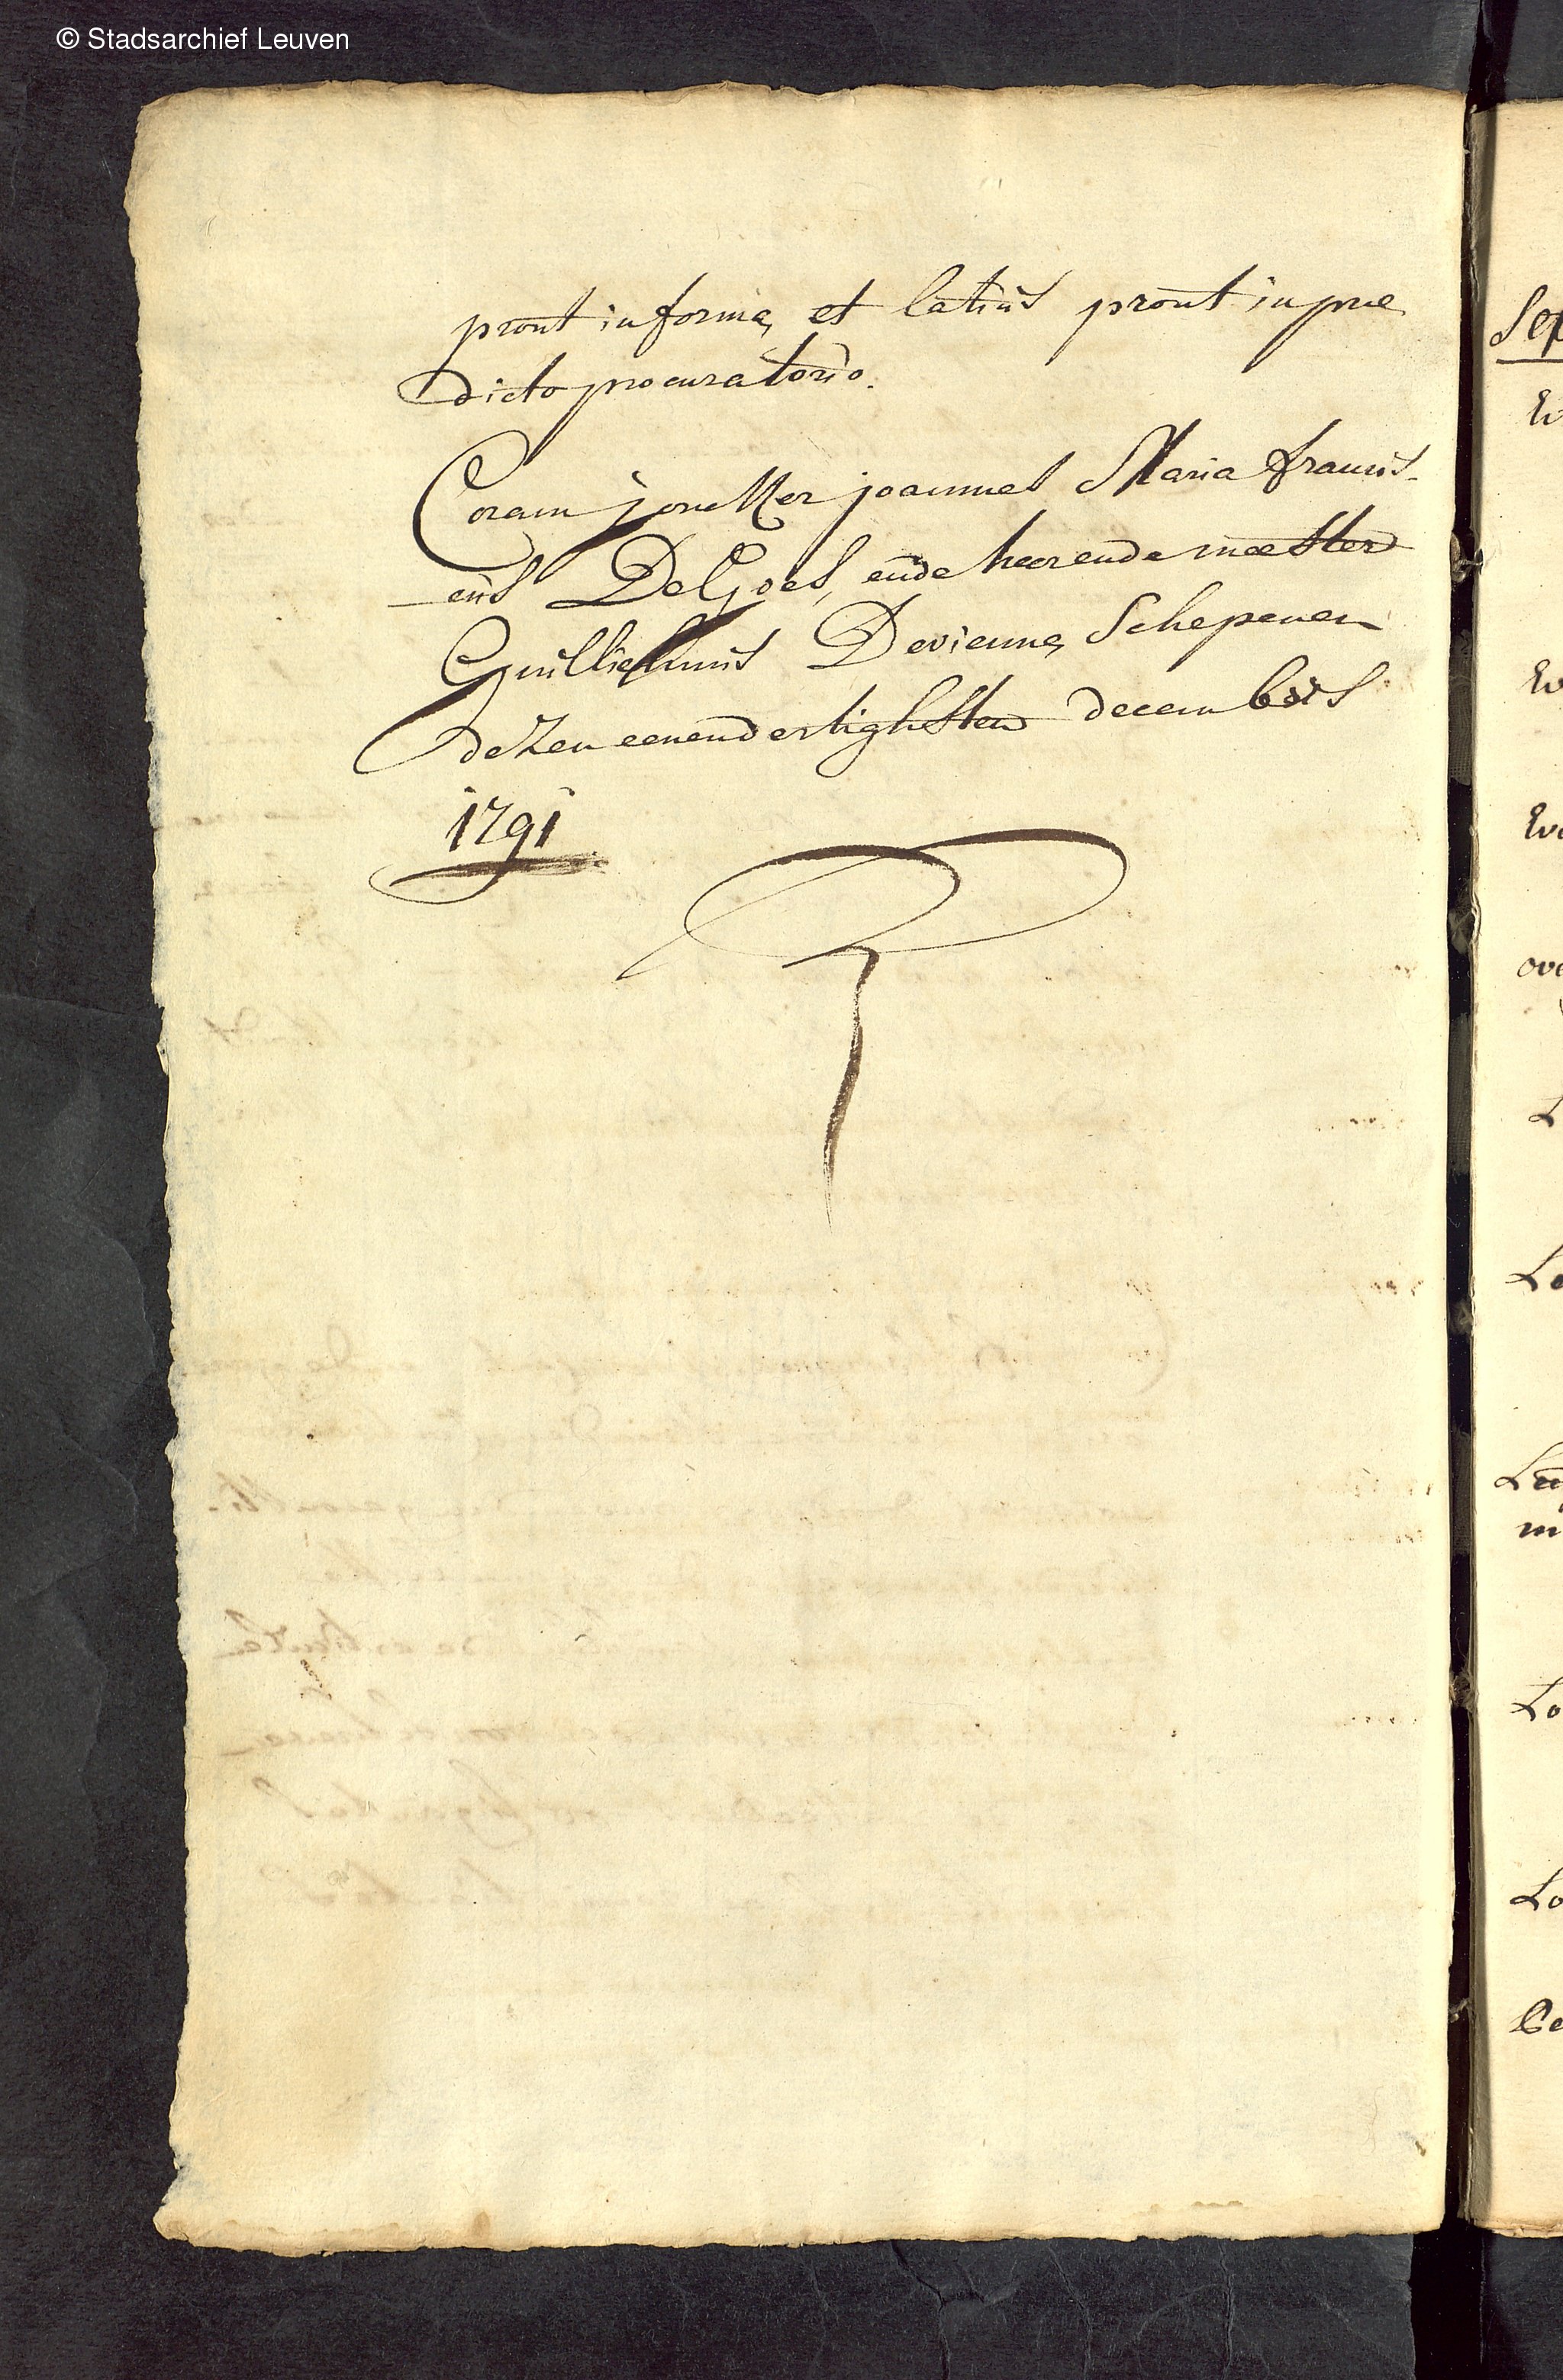 © Stadsarchief Leuven
prout in forma, et latius prout in prae
dicto procuratorio.
Coram joncker joannes Maria francis-
cus De Goes, ende heer ende meester
Guillielmus Devienne, Schepenen
dezen eenendertighsten decembris
1791